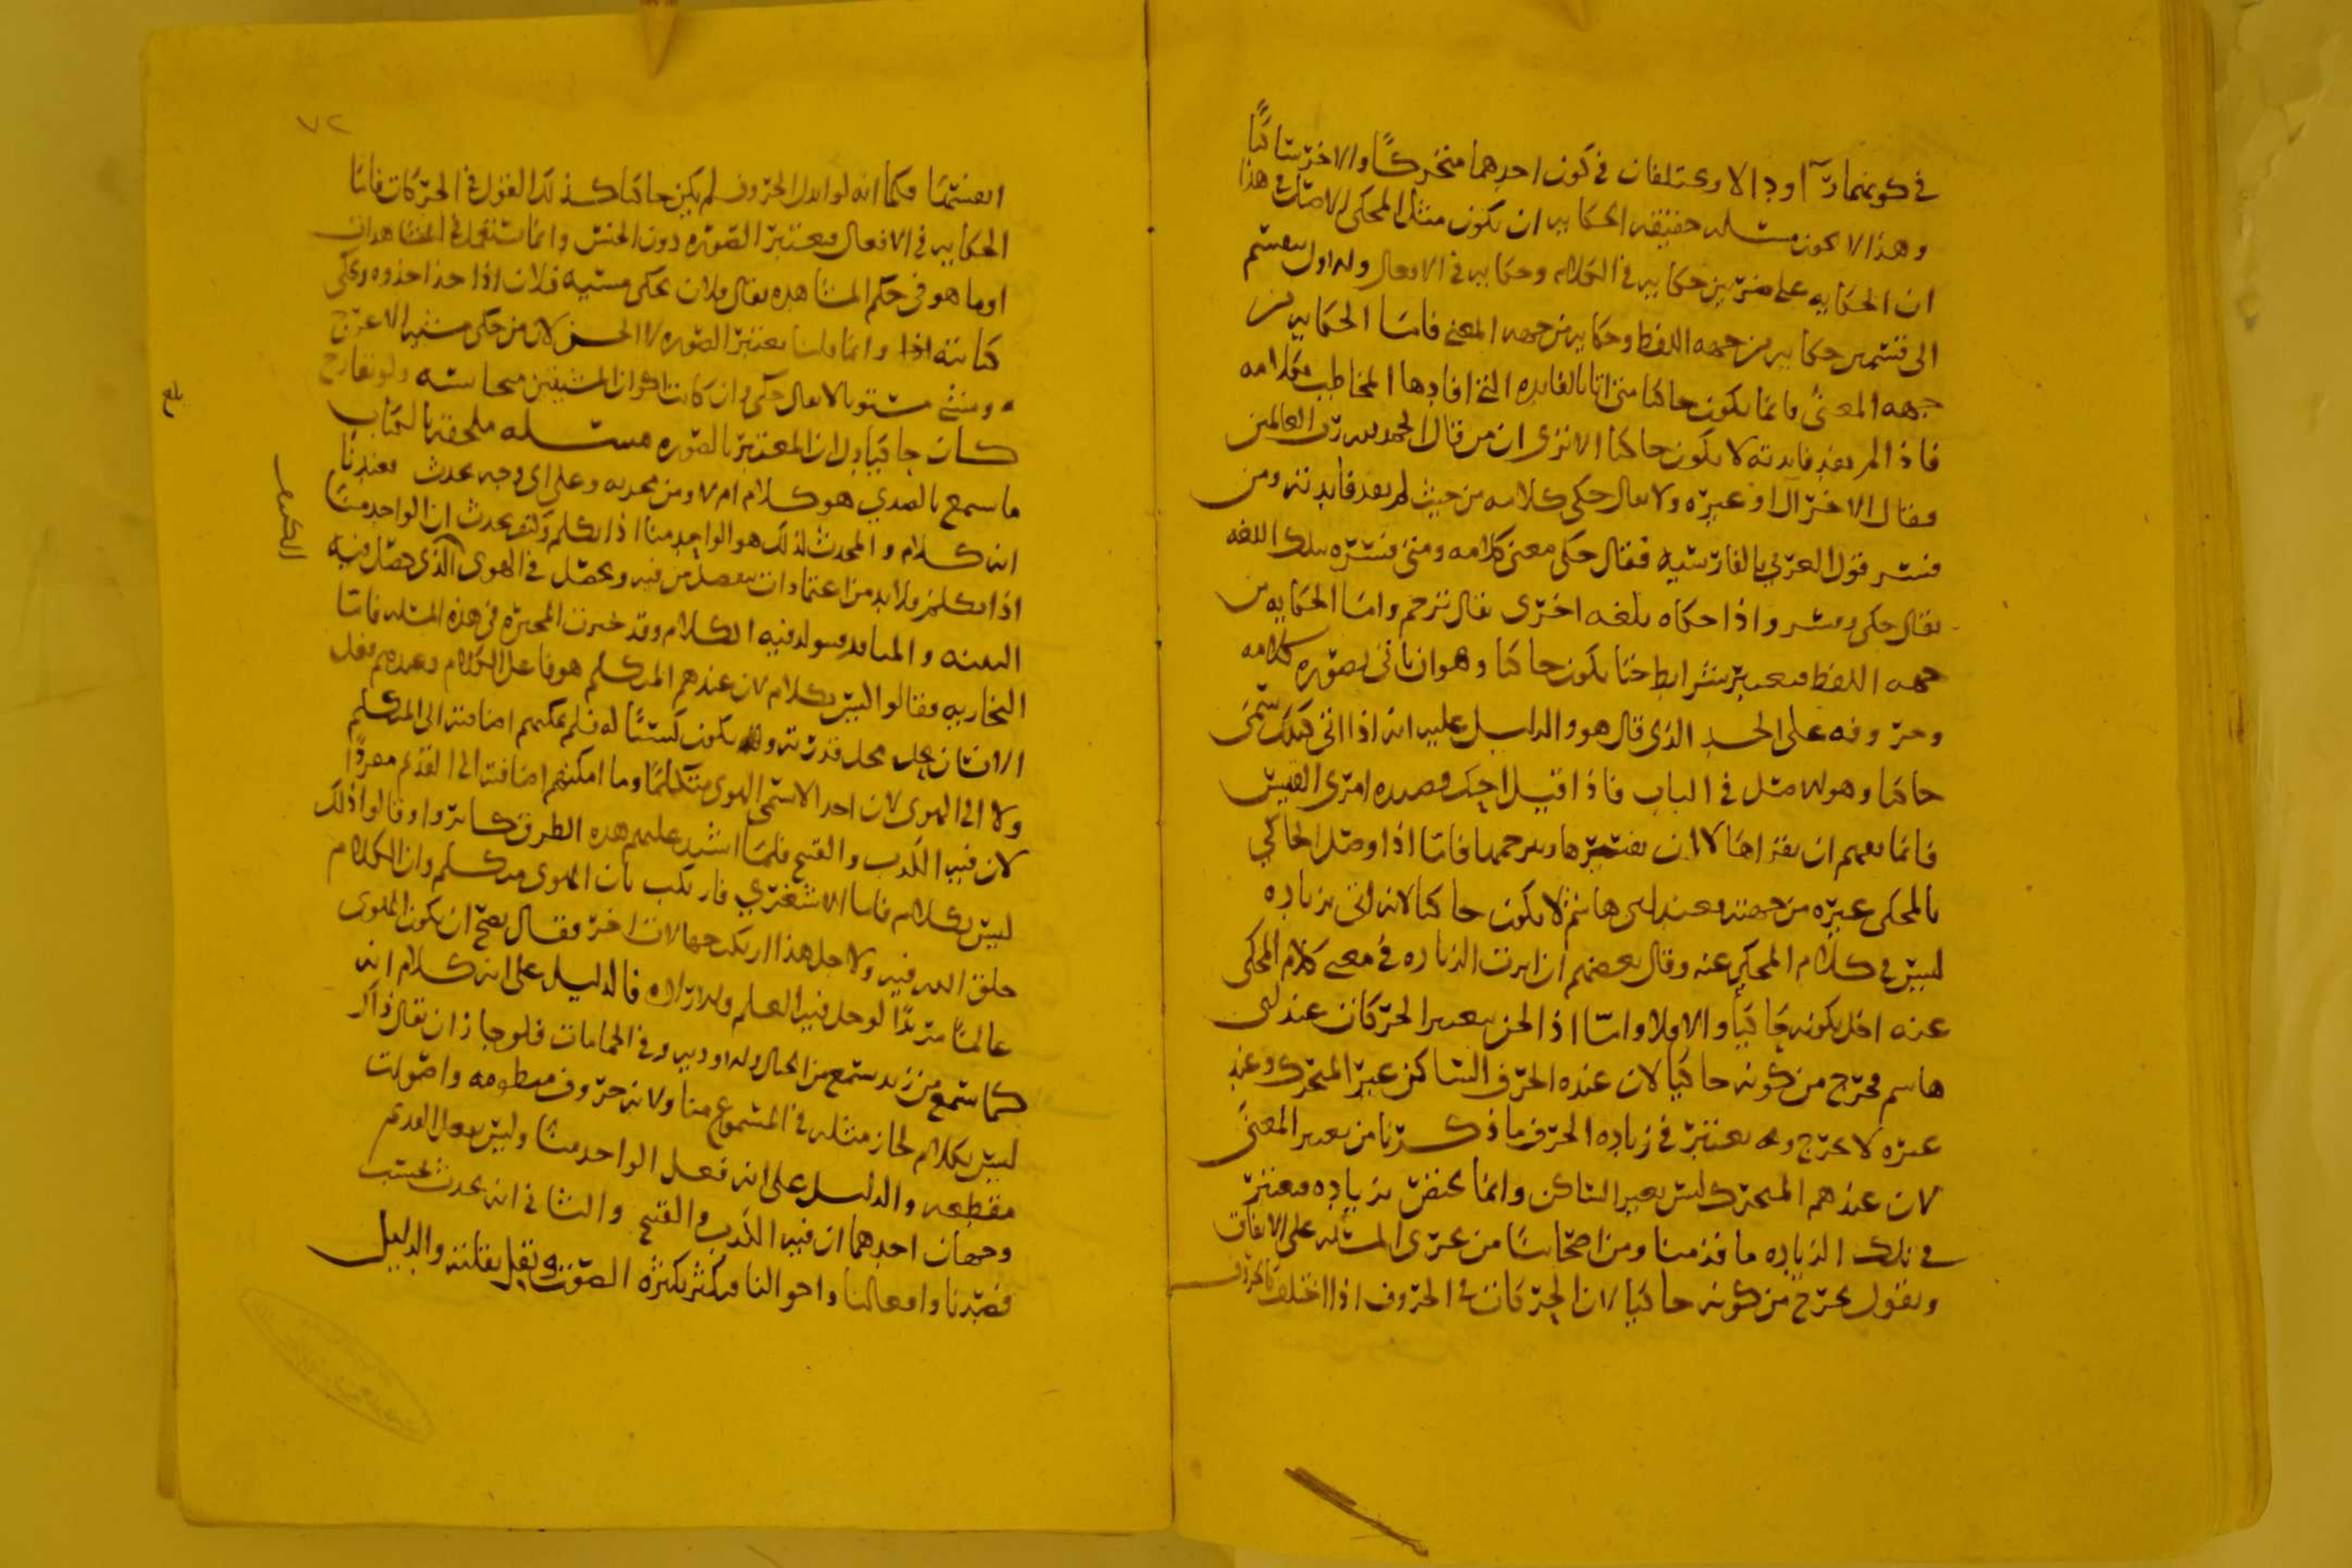 في كونهما رآ او دالا ويختلفان في كون احدهما متحركًا والاخر ساكنًا
وهذا لا يكون مسله حقيقه الحكايه ان يكون مثل المحكي الاصل في هذا
ان الحكايه على ضربين حكايه في الكلام وحكايه في الافعال والاول ينقسم
الى قسمين حكايه من جهه اللفظ وحكايه من جهه المعنى فاما الحكايه من
جهه المعنى فانما يكون حاكيا متى اتا بالفايده التي افادها المخاطب بكلامه
فاذا لم يفد فايدته لا يكون حاكيا الا ترى ان من قال الحمد لله رب العالمين
فقال الاخر آل او غيره ولا يقال حكى كلامه من حيث لم يفد فايدته ومن
فسر قول العربي بالفارسيه فقال حكى معنى كلامه ومتى فسره بتلك اللغه
يقال حكى وفسر واذا حكاه بلغه اخرى يقال ترجم واما الحكايه من
جهه اللفظ فيعتبر شرايط حتا يكون حاكيا وهو ان ياتي بصوره كلامه
وحروفه على الحد الذي قال هو والدليل عليه انه اذا اتى بذلك سمي
حاكيا وهو الاصل في الباب فاذا قيل احك قصيده امرى القيس
فانما يفهم ان يقراها لا ان يفسرها ويترجمها فاما اذا وصل الحاكي
بالمحكي غيره من جهته فعند ابي هاشم لا يكون حاكيا لانه اتى بزياده
ليس في كلام المحكي عنه وقال بعضهم ان اثرت الزياده في معنى كلام المحكي
عنه اخل بكونه حاكيا والا فلا واما اذا لحن بتغيير الحركات عند ابي
هاسم يخرج من كونه حاكيا لان عنده الحرف الساكن غير المتحرك وعند
غيره لا يخرج ويعتبر في زياده الحرف ما ذكرنا من تغيير المعنى
لان عندهم المتحرك ليس بغير الساكن وانما يختص بزياده فيعتبر
في تلك الزياده ما قدمنا ومن اصحابنا من يجري المسله على الاتفاق
ويقول يخرج من كونه حاكيا لان الحركات في الحروف اذا اختلف كالحروف
٧٢
انفسها فكما انه لو ابدل الحروف لم يكن حاكيا كذلك القول في الحركات فاما
الحكايه في الافعال فيعتبر الصوره دون الجنس وانما تستعمل في المشاهدات
او ما هو في حكم المشاهده يقال فلان يحكي مشيه فلان اذا حذا حذوه ويحكي
كتابته وانما قلنا يعتبر الصوره لا الجنس لان من حكى مشيه الاعرج
ومشى مستويا لا يقال حكى وان كانت اكوان المشيتين متجانسه ولو تعارج
كان حاكيا دل ان المعتبر بالصوره مسله ملحقه بالكتاب
بلغ
ما سمع بالصدي هو كلام ام لا ومن يحدثه وعلى اي وجه يحدث فعندنا
انه كلام والمحدث لذلك هو الواحد منا اذا تكلم وكيف يحدث ان الواحد منا
اذا تكلم فلا بد من اعتمادات تنفصل من فيه ويحصل في الهوى الذي حصل فيه
البنيه والمنافذ فيتولد فيه الكلام وقد خبرت المجبره في هذه المسله فاما
النجاريه فقالوا ليس بكلام لان عندهم المتكلم هو فاعل الكلام وعندهم فعل
الانسان يحل محل قدرته و يكون كسبًا له فلم يمكنهم اضافته الى المتكلم
ولا الى الهوى لان احدا لا يسمي الهوى متكلمًا وما امكنهم اضافته الى القديم
لان فيه الكذب والقبيح فلما انسد عليهم هذه الطرق كابروا وقالوا ذلك
ليس بكلام فاما الاشعري فارتكب بان الهوى متكلم وان الكلام
خلق الله فيه ولاجل هذا ارتكب جهالات اخر فقال يصح ان يكون الهوى
عالمًا مريدًا لو حل فيه العلم والاراده فالدليل على انه كلام انه
كما سمع من زيد سمع من الجبال والاوديه وفي الحمامات فلو جاز ان يقال ذاك
ليس بكلام لجاز مثله في المسموع منا ولانه حروف منظومه واصوات
مقطعه والدليل على انه فعل الواحد منا وليس بفعل القديم
وجهان احدهما ان فيه الكذب والقبيح والثاني انه يحدث بحسب
قصدنا وافعالنا واحوالنا فيكثر بكثره الصوت ويقل بقلته والدليل